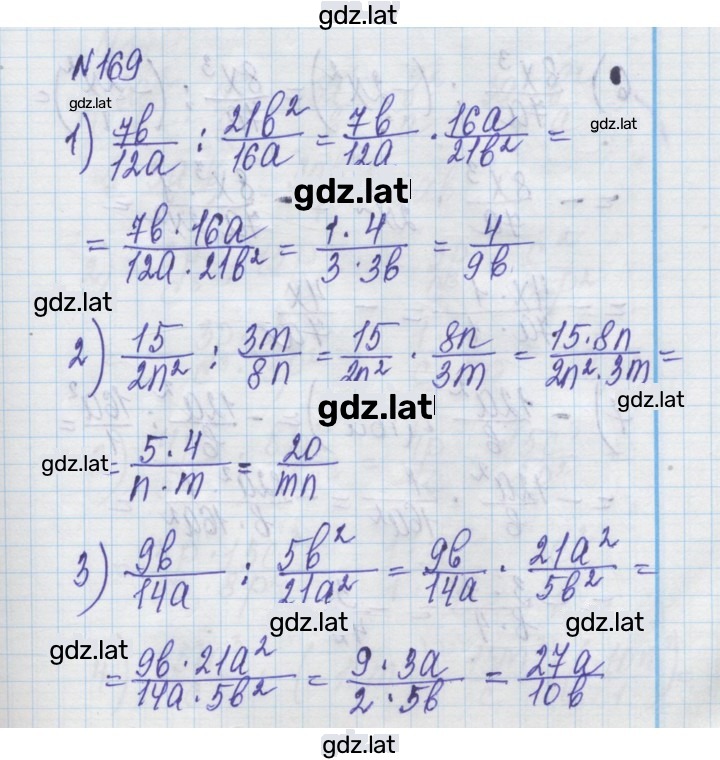 gdz.lat
№169
gdz.lat
1) 7b/12a : 21b²/16a = 7b/12a · 16a/21b² =
gdz.lat
gdz.lat
= 7b·16a/12a·21b² = 1·4/3·3b = 4/9b
gdz.lat
2) 15/2n² : 3m/8n = 15/2n² · 8n/3m = 15·8n/2n²·3m =
gdz.lat
gdz.lat
= 5·4/n·m = 20/mn
gdz.lat
3) 9b/14a : 5b²/21a² = 9b/14a · 21a²/5b² =
gdz.lat
gdz.lat
gdz.lat
= 9b·21a²/14a·5b² = 9·3a/2·5b = 27a/10b
gdz.lat